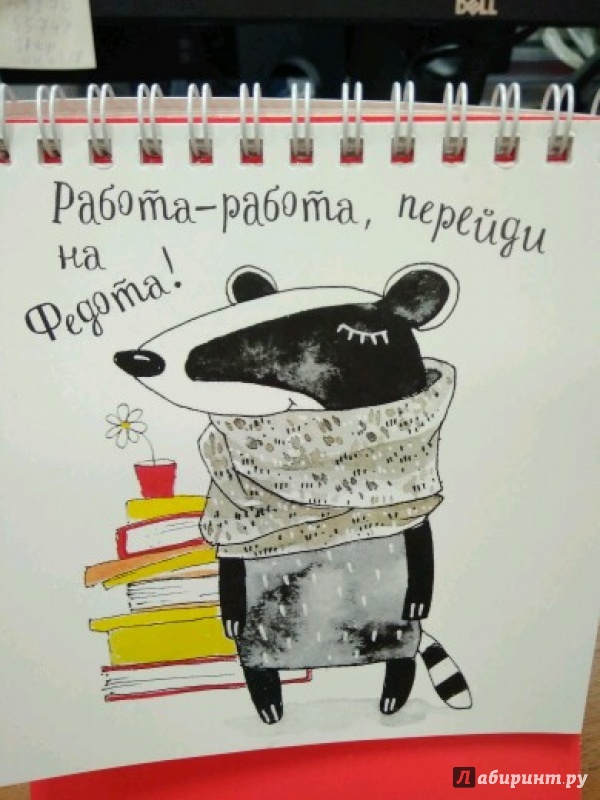 DELL
Работа-работа, перейди
на
Федота!
Лабиринт.ру